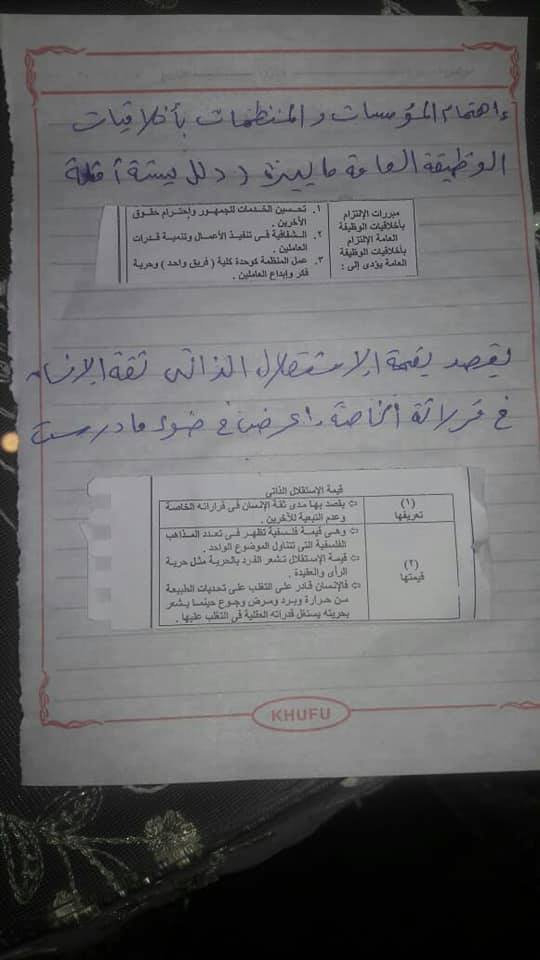 اهتمام المؤسسات والمنظمات بأخلاقيات
الوظيفة العامة ما يبرره ( دلل بستة أدلة
مبررات الإلتزام
بأخلاقيات الوظيفة
العامة الإلتزام
بأخلاقيات الوظيفة
العامة يؤدى إلى :
١. تحسين الخدمات للجمهور وإحترام حقوق
الأخرين .
٢. الشفافية فى تنفيذ الأعمال وتنمية قدرات
العاملين .
٣. عمل المنظمة كوحدة كلية ( فريق واحد ) وحرية
فكر وإبداع العاملين .
يقصد بقيمة الاستقلال الذاتى ثقة الإنسان
فى قراراته الخاصة . اعرض فى ضوء ما درست
قيمة الإستقلال الذاتى
(١)
تعريفها
⇦ يقصد بها مدى ثقة الإنسان فى قراراته الخاصة
وعدم التبعية للآخرين .
(٢)
قيمتها
⇦ وهى قيمة فلسفية تظهر فى تعدد المذاهب
الفلسفية التى تتناول الموضوع الواحد .
⇦ قيمة الإستقلال تشعر الفرد بالحرية مثل حرية
الرأى والعقيدة .
⇦ فالإنسان قادر على التغلب على تحديات الطبيعة
من حرارة وبرد ومرض وجوع حينما يشعر
بحريته يستغل قدراته العقلية فى التغلب عليها .
KHUFU